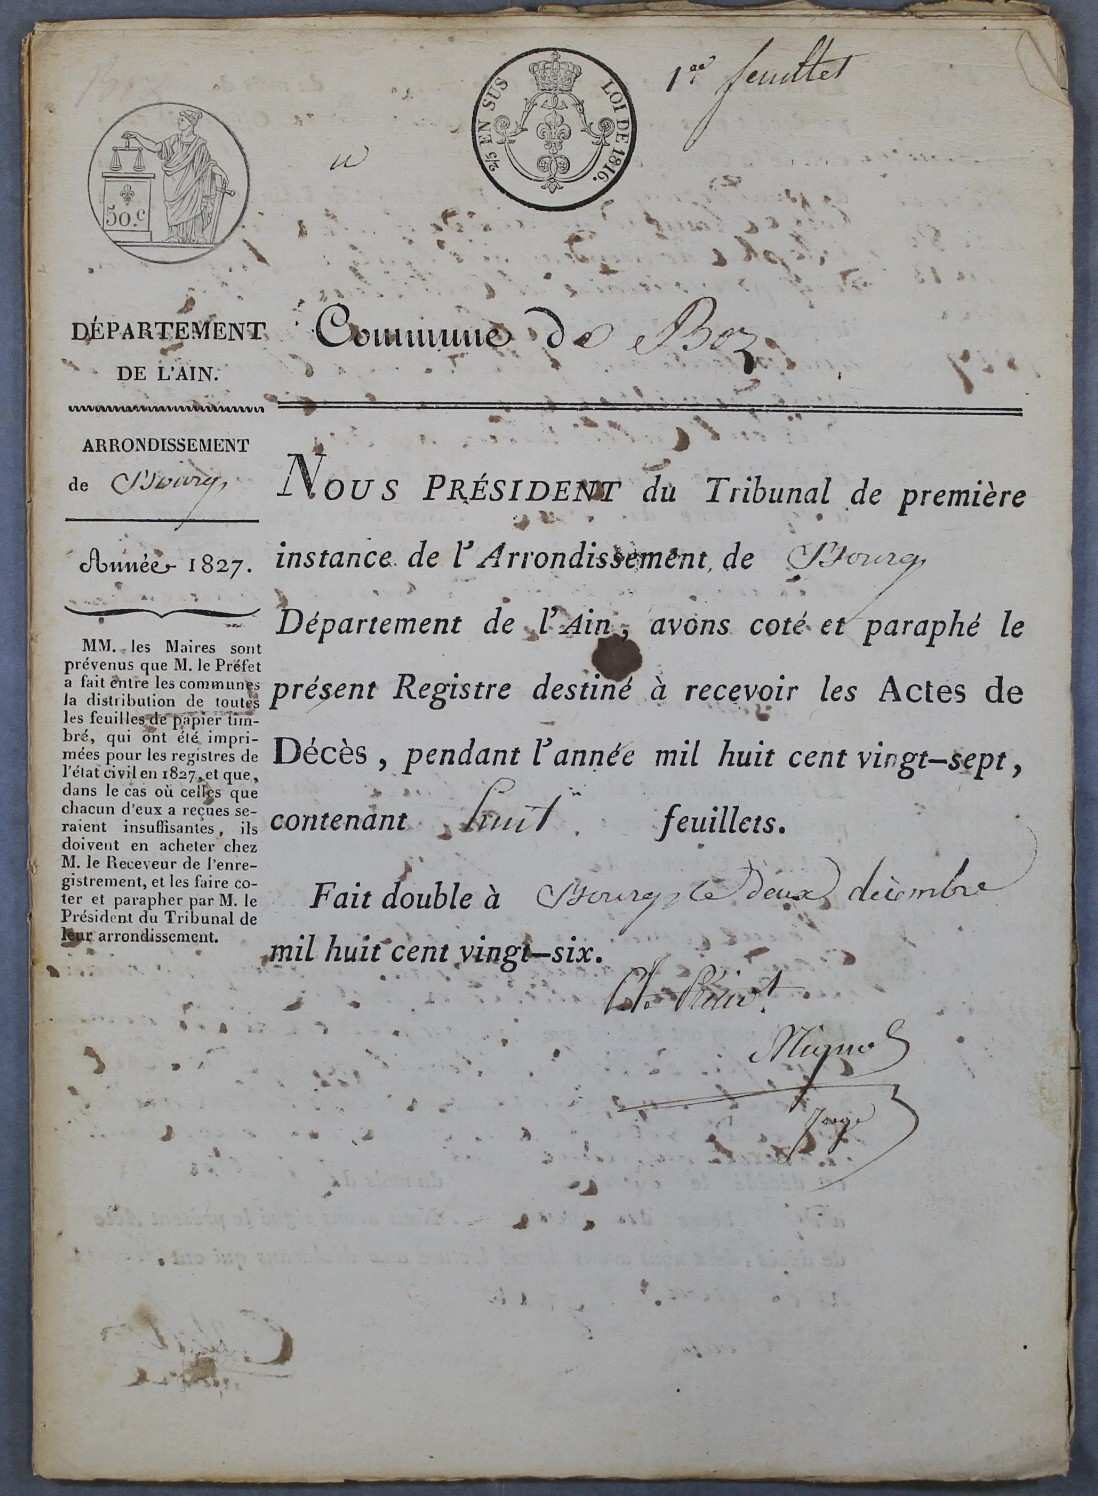 1er feuillet
2/5 EN SUS LOI DE 1816.
50.c
DÉPARTEMENT
DE L'AIN.
ARRONDISSEMENT
de Bourg
Année 1827.
MM. les Maires sont
prévenus que M. le Préfet
a fait entre les communes
la distribution de toutes
les feuilles de papier tim-
bré, qui ont été impri-
mées pour les registres de
l'état civil en 1827, et que,
dans le cas où celles que
chacun d'eux a reçues se-
raient insuffisantes, ils
doivent en acheter chez
M. le Receveur de l'enre-
gistrement, et les faire co-
ter et parapher par M. le
Président du Tribunal de
leur arrondissement.
Commune de Boz
NOUS PRÉSIDENT du Tribunal de première
instance de l'Arrondissement de Bourg
Département de l'Ain, avons coté et paraphé le
présent Registre destiné à recevoir les Actes de
Décès, pendant l'année mil huit cent vingt-sept,
contenant huit feuillets.
Fait double à Bourg le deux décembre
mil huit cent vingt-six.